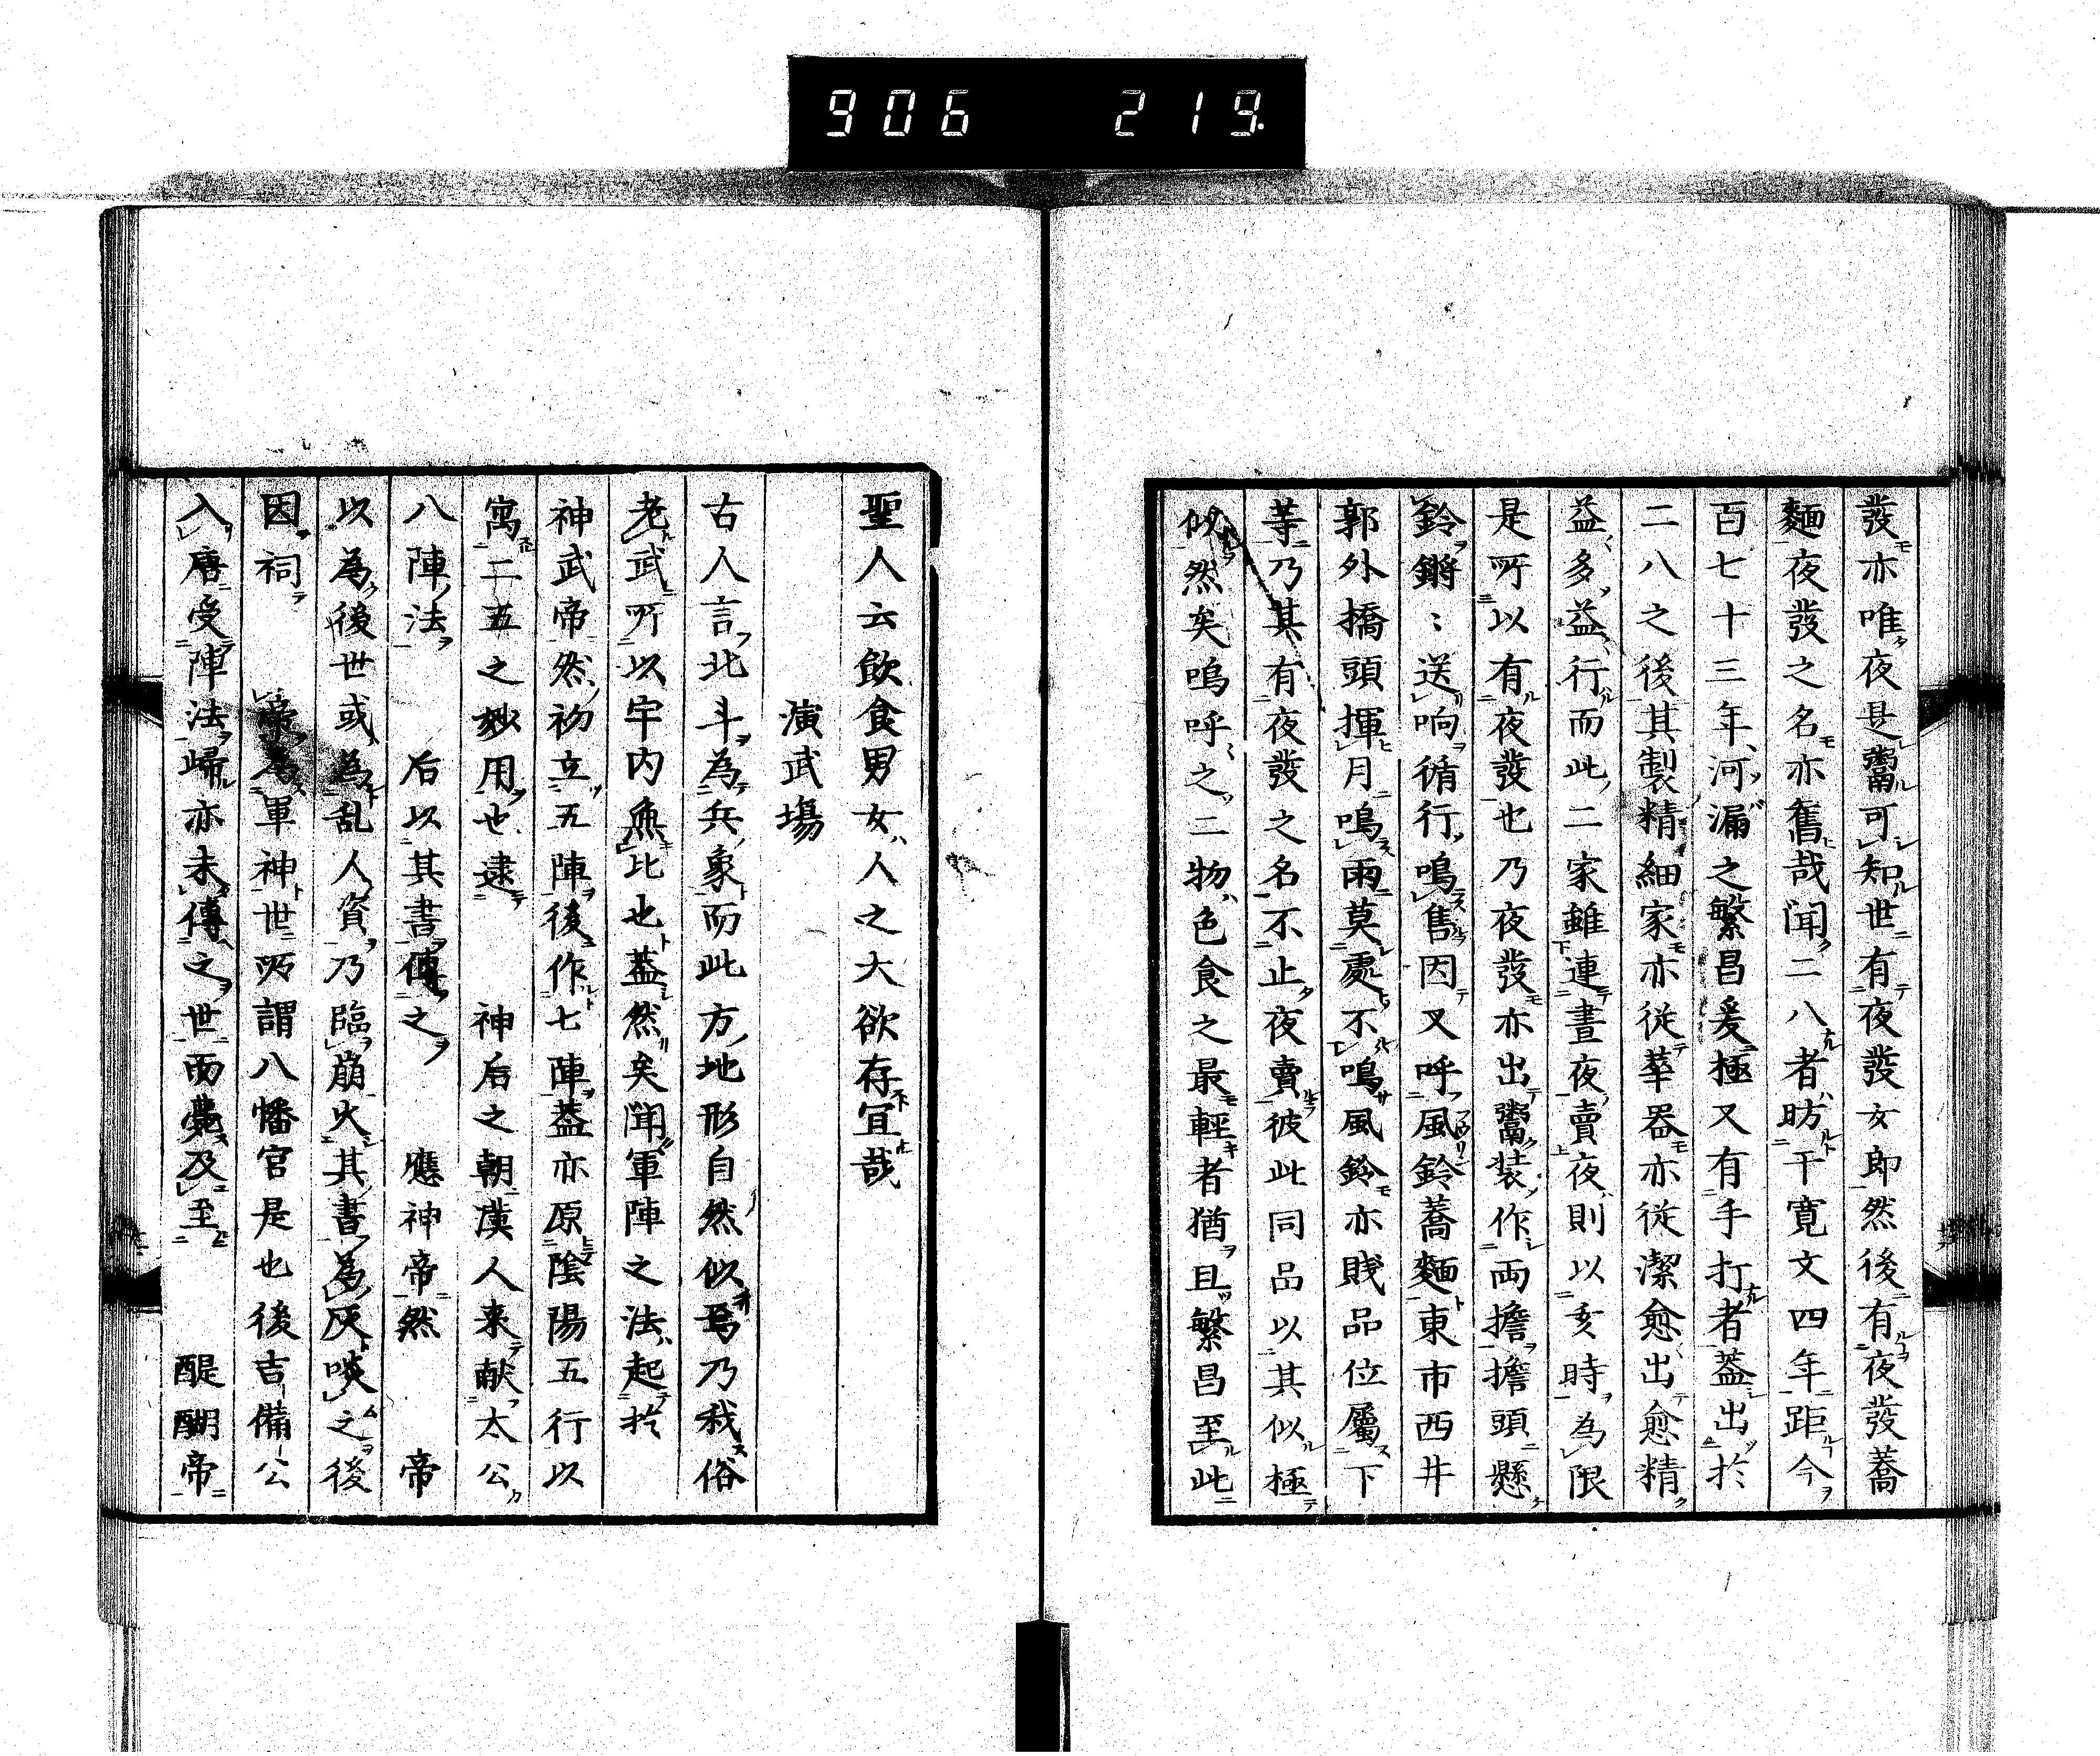 906 219.
發亦唯夜是鬻可知世有夜發女郎然後有夜發蕎
麺夜發之名亦舊哉聞二八者昉于寛文四年距今
百七十三年河漏之繁昌爰極又有手打者蓋出於
二八之後其製精細家亦從華器亦從潔愈出愈精
益多益行而此二家雖連晝夜賣夜則以亥時為限
是所以有夜發也乃夜發亦出鬻装作両擔擔頭懸
鈴鏘〻送响循行鳴售因又呼風鈴蕎麺東市西井
郭外橋頭揮月鳴雨莫處不鳴風鈴亦賎品位屬下
等乃其有夜發之名不止夜賣彼此同品以其似極
似然矣嗚呼之二物色食之最輕者猶且繁昌至此
聖人云飲食男女人之大欲存宜哉
演武場
古人言北斗為兵象而此方地形自然似焉乃我俗
老武所以宇内魚比也蓋然矣聞軍陣之法起於
神武帝然初立五陣後作七陣蓋亦原陰陽五行以
寓二五之妙用也逮 神后之朝漢人来献太公
八陣法 后以其書傳之 應神帝然 帝
以為後世或為乱人資乃臨崩火其書為灰啖之後
因祠 帝為軍神世所謂八幡宮是也後吉備公
入唐受陣法歸亦未傳之世而薨及至 醍醐帝